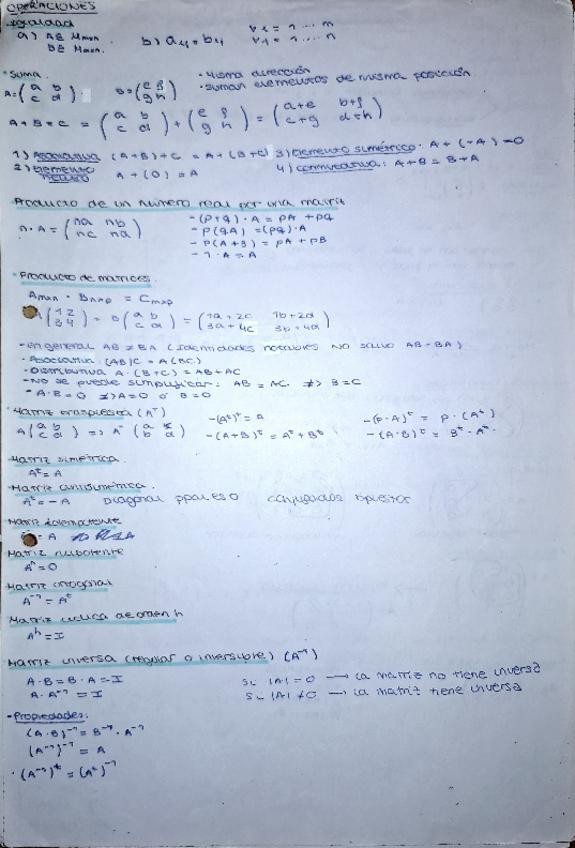 OPERACIONES
Igualdad
a) A∈ Mmxn. B∈ Mmxn. b) aij = bij ∀i = 1 ... m ∀j = 1 .... n
• Suma • Misma dirección
A=(a b / c d) B=(e f / g h) • Suman elementos de misma posición
A + B = C = (a b / c d) + (e f / g h) = (a+e b+f / c+g d+h)
1) Asociativa (A+B)+C = A+(B+C) 3) Elemento simétrico. A+(-A)=0
2) Elemento Neutro A+(0)=A 4) conmutativa: A+B=B+A
Producto de un número real por una matriz
n·A = (na nb / nc nd)
-(p+q)·A = pA + pq
-p(qA) = (pq)·A
-p(A+B) = pA + pB
-1·A = A
• Producto de matrices.
Amxn · Bnxp = Cmxp
A(1 2 / 3 4) B(a b / c d) = (1a+2c 1b+2d / 3a+4c 3b+4d)
-en general AB ≠ BA (identidades notables NO salvo AB=BA)
• Asociativa: (AB)C = A(BC)
• Distributiva A·(B+C) = AB+AC
-No se puede simplificar: AB = AC. ≠> B=C
-A·B=0 ≠>A=0 ó B=0
• Matriz traspuesta (Aᵗ)
A(a b / c d) => Aᵗ(a c / b d)
-(Aᵗ)ᵗ = A
-(A+B)ᵗ = Aᵗ+Bᵗ
-(p·A)ᵗ = p·(Aᵗ)
-(A·B)ᵗ = Bᵗ·Aᵗ
Matriz simétrica.
Aᵗ = A
Matriz antisimétrica
Aᵗ = -A Diagonal ppal es 0 conjugados opuestos
Matriz idempotente
= A
Matriz nilpotente
Aⁿ=0
Matriz ortogonal
A⁻¹ = Aᵗ
Matriz cíclica de orden n
Aⁿ = I
Matriz inversa (regular o inversible) (A⁻¹)
A·B = B·A = I si |A| = 0 → la matriz no tiene inversa
A·A⁻¹ = I si |A| ≠ 0 → la matriz tiene inversa
• Propiedades:
(A·B)⁻¹ = B⁻¹·A⁻¹
(A⁻¹)⁻¹ = A
• (A⁻¹)ᵗ = (Aᵗ)⁻¹